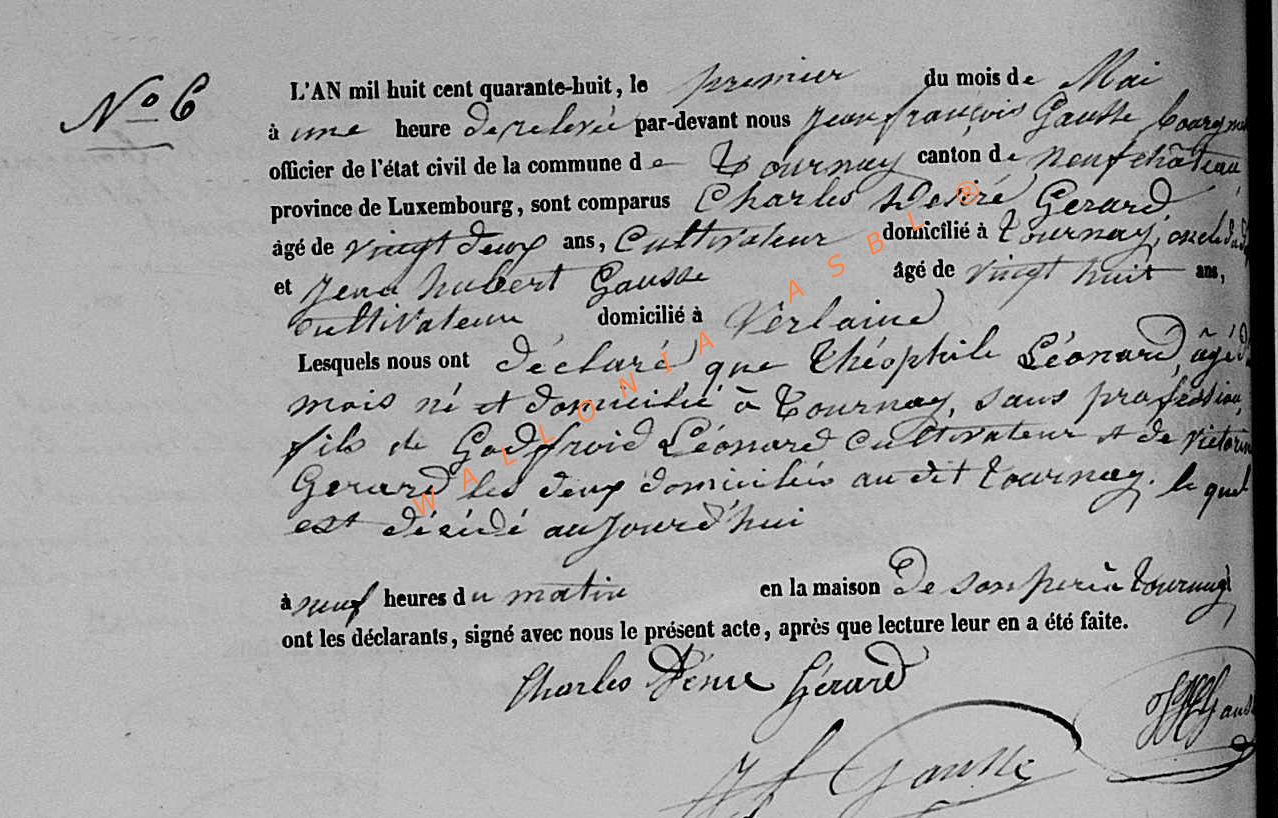 N° 6
L'AN mil huit cent quarante-huit, le premier du mois de Mai
à une heure de relevée par-devant nous jean françois Gausse bourgm
officier de l'état civil de la commune de Tournay canton de neufchâteau
province de Luxembourg, sont comparus Charles Desiré Gerard
âgé de vingt deux ans, Cultivateur domicilié à Tournay, oncle du
et jean hubert Gausse âgé de vingt huit ans,
cultivateur domicilié à Verlaine
Lesquels nous ont déclaré que Théophile Léonard, âgé
mois né et domicilié à Tournay, sans profession,
fils de Godfroid Léonard cultivateur et de victorine
Gerard les deux domiciliés au dit tournay. le quel
est décédé aujourd'hui
à neuf heures du matin en la maison De son père à tournay
ont les déclarants, signé avec nous le présent acte, après que lecture leur en a été faite.
Charles Gérard
Gauss
J f Gausse
WALLONIA ASBL ®